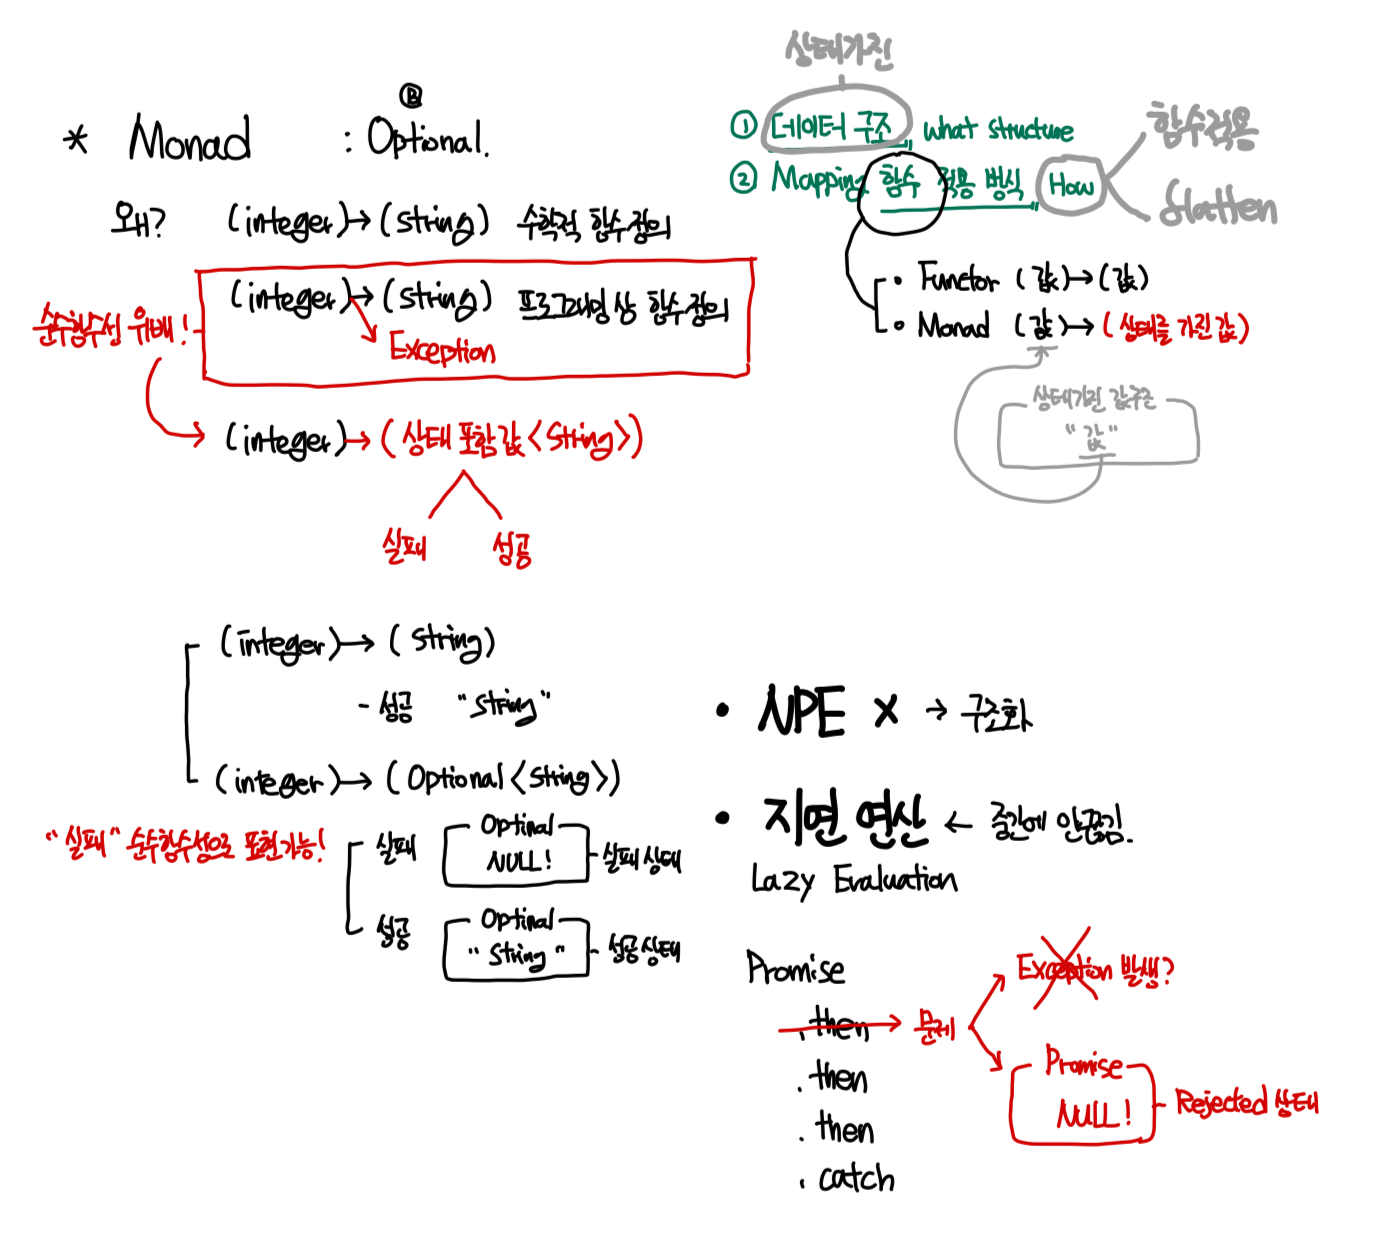 * Monad : Optional.
B
왜? (integer)→(string) 수학적 함수정의
(integer)→(string) 프로그래밍상 함수정의
Exception
순수함수성 위배!
(integer)→(상태 포함 값<String>)
실패 성공
상태가진
① 데이터 구조, what structure
② Mapping 함수 적용 방식 How
함수적용
flatten
• Functor (값)→(값)
• Monad (값)→(상태를 가진 값)
상태가진 값구조
"값"
(integer)→(String)
- 성공 "String"
(integer)→(Optional<String>)
"실패" 순수함수성으로 표현가능!
실패
Optinal
NULL!
실패상태
성공
Optinal
"String"
성공상태
• NPE X → 구조화
• 지연 연산 ← 중간에 안끊김.
Lazy Evaluation
Promise
.then → 문제
.then
.then
.catch
Exception 발생?
Promise
NULL!
Rejected 상태